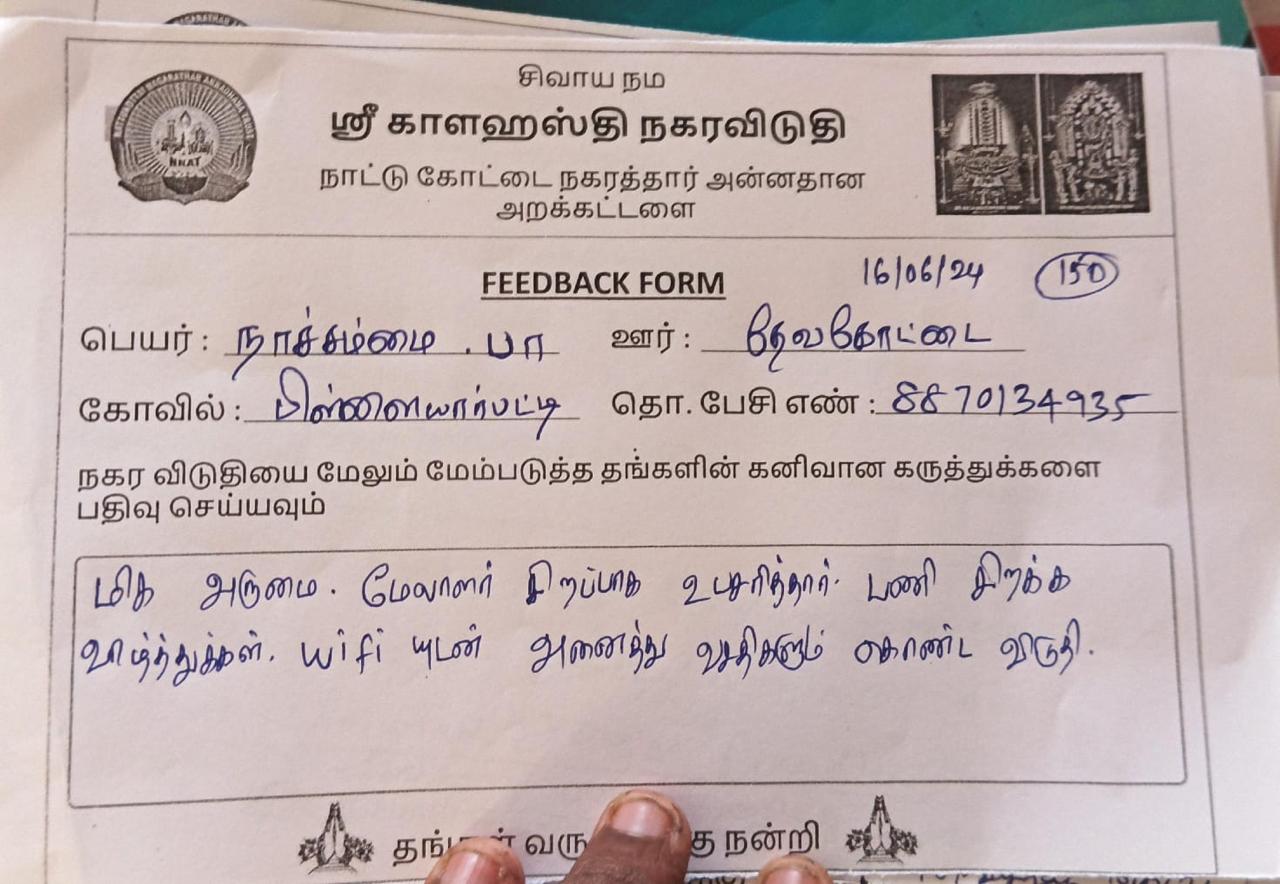 சிவாய நம
ஸ்ரீ காளஹஸ்தி நகரவிடுதி
நாட்டு கோட்டை நகரத்தார் அன்னதான
அறக்கட்டளை
NNAT
FEEDBACK FORM 16/06/24 150
பெயர் : நாச்சம்மை . பா ஊர் : தேவகோட்டை
கோவில் : பிள்ளையார்பட்டி தொ. பேசி எண் : 8870134935
நகர விடுதியை மேலும் மேம்படுத்த தங்களின் கனிவான கருத்துக்களை
பதிவு செய்யவும்
மிக அருமை. மேலாளர் சிறப்பாக உபசரித்தார். பணி சிறக்க
வாழ்த்துக்கள். wifi யுடன் அனைத்து வசதிகளும் கொண்ட விடுதி.
நன்றி